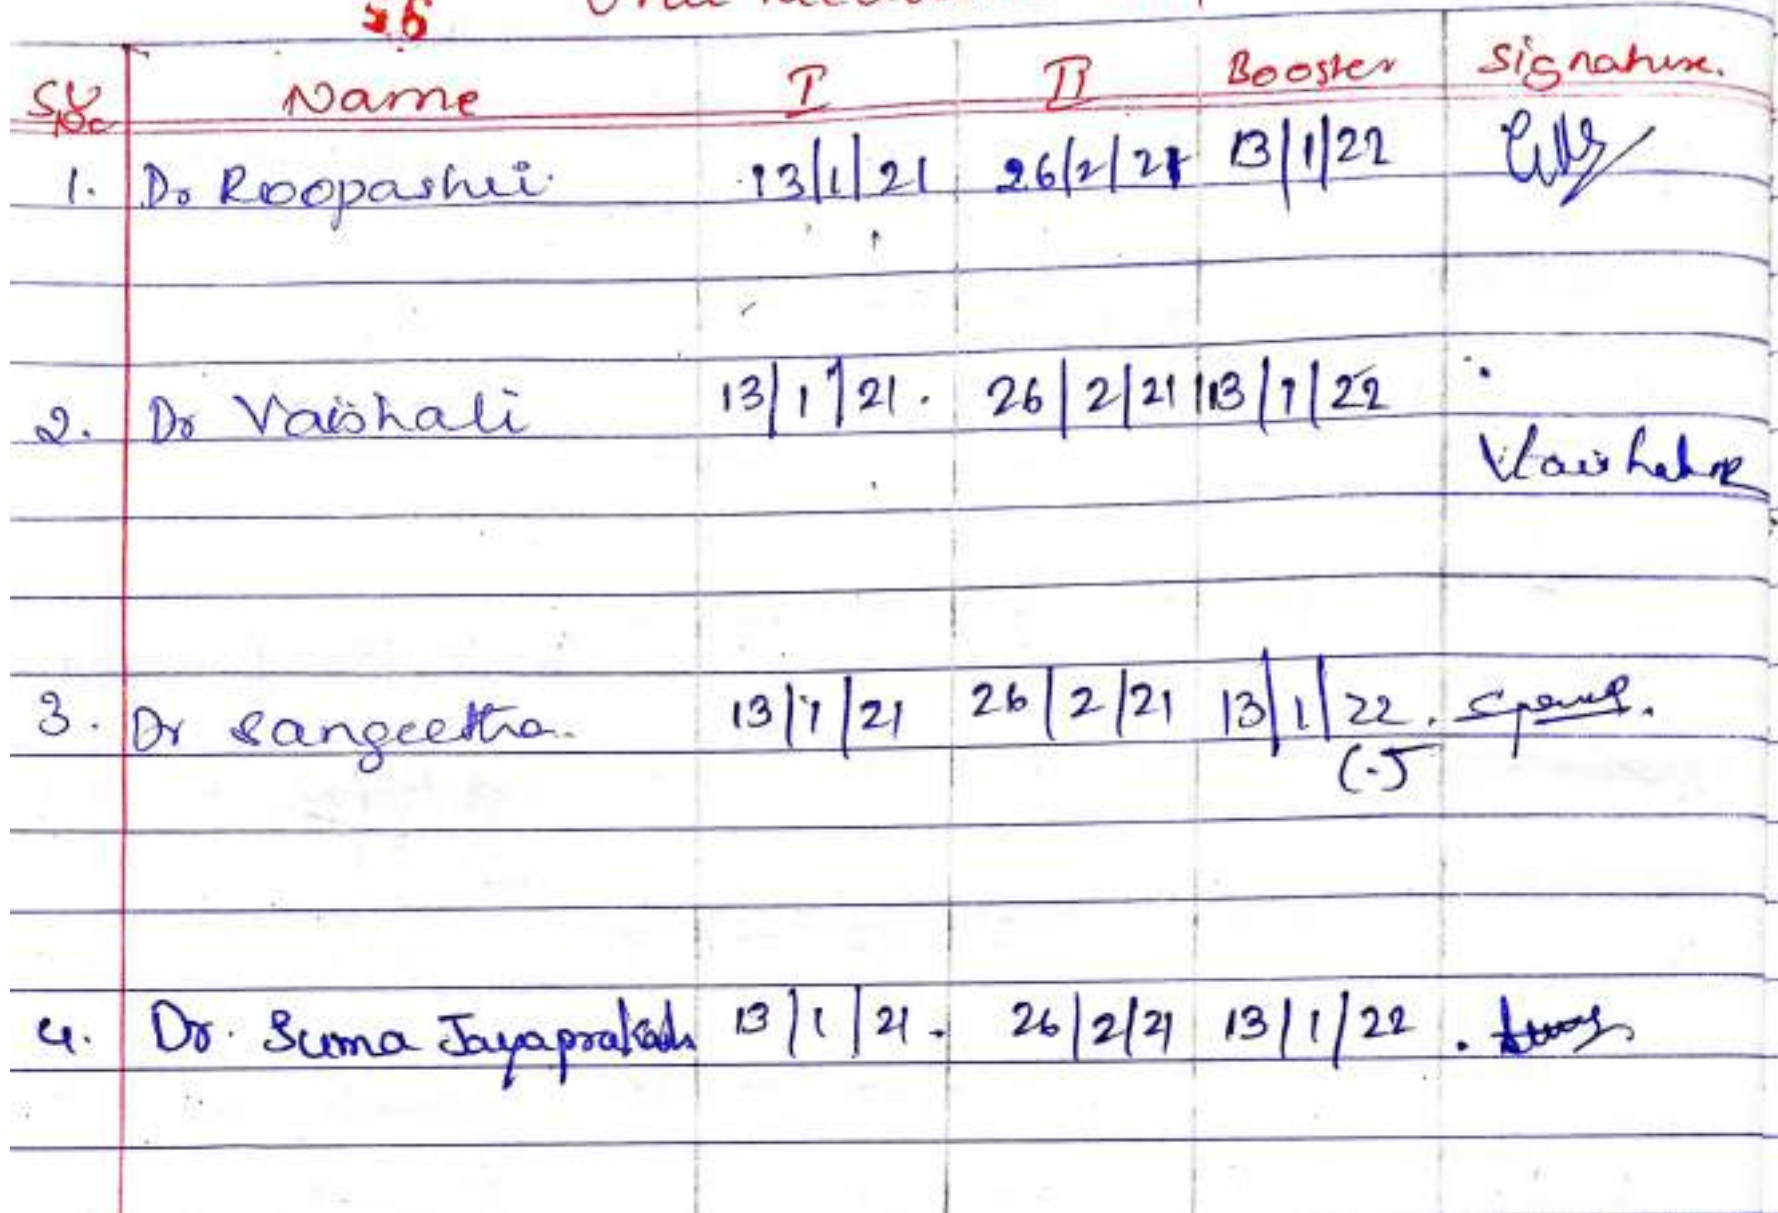 Sl No Name I II Booster Signature.
1. Dr Roopashri 13/1/21 26/2/21 13/1/22
2. Dr Vaishali 13/1/21. 26/2/21 13/1/22
3. Dr Sangeetha. 13/1/21 26/2/21 13/1/22.
4. Dr. Suma Jayaprakash 13/1/21. 26/2/21 13/1/22.